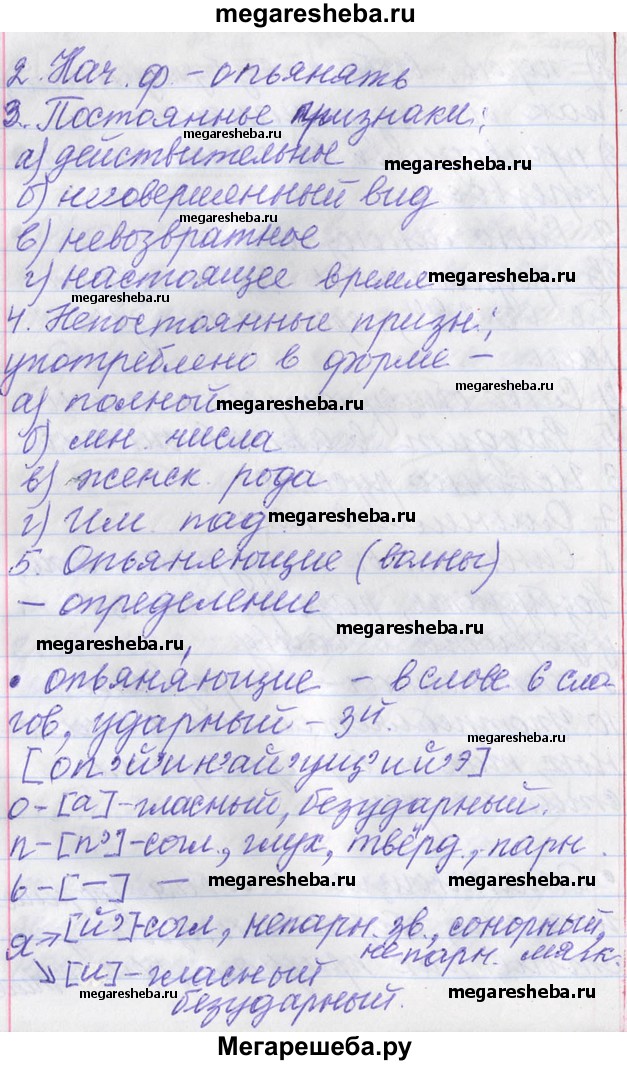 megaresheba.ru
2. Нач. ф. - опьянять
3. Постоянные признаки:
megaresheba.ru
а) действительное
megaresheba.ru
б) несовершенный вид
megaresheba.ru
в) невозвратное
г) настоящее время
megaresheba.ru
megaresheba.ru
4. Непостоянные призн.:
употреблено в форме -
megaresheba.ru
а) полный
megaresheba.ru
б) мн. числа
в) женск. рода
г) Им. пад.
megaresheba.ru
5. Опьяняющие (волны)
- определение
megaresheba.ru
megaresheba.ru
• опьяняющие - в слове 6 сло
гов, ударный - 3й.
[оп'й'ин'ай'ущ'ий'э]
о - [а] - гласный, безударный.
п - [п'] - согл., глух., твёрд., парн.
ь - [-] -
megaresheba.ru
я → [й'] - согл, непарн. зв., сонорный,
непарн. мягк.
↘ [и] - гласный
безударный.
megaresheba.ru
megaresheba.ru
Мегарешеба.ру